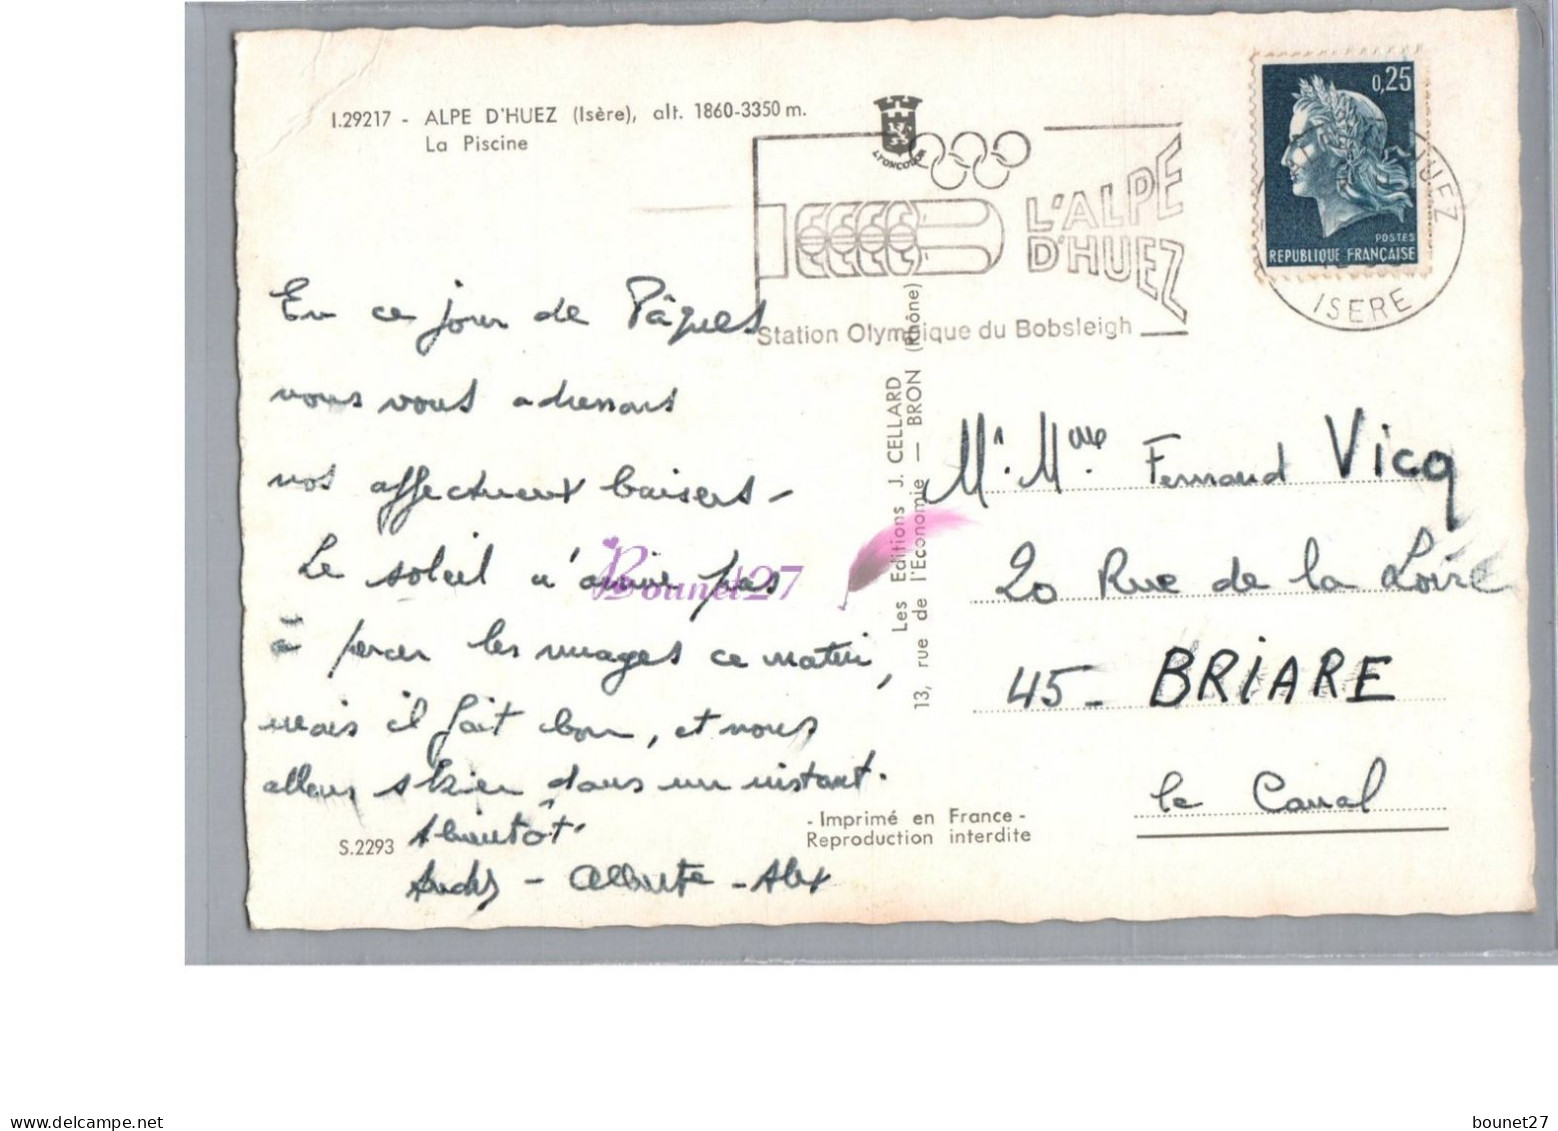 I.29217 - ALPE D'HUEZ (Isère), alt. 1860-3350 m.
La Piscine
LYONCOLOR
L'ALPE
D'HUEZ
Station Olympique du Bobsleigh
0,25
POSTES
REPUBLIQUE FRANÇAISE
HUEZ
ISERE
En ce jour de Pâques
nous vous adressons
nos affectueux baisers -
Le soleil n'arrive pas
à percer les nuages ce matin,
mais il fait bon, et nous
allons skier dans un instant.
A bientôt
André - Alberte - Alex
Bounet27
Les Editions J. CELLARD
13, rue de l'Economie — BRON (Rhône)
Mr. Mme Fernand Vicq
20 Rue de la Loire
45 - BRIARE
le Canal
S.2293
- Imprimé en France -
Reproduction interdite
www.delcampe.net
bounet27